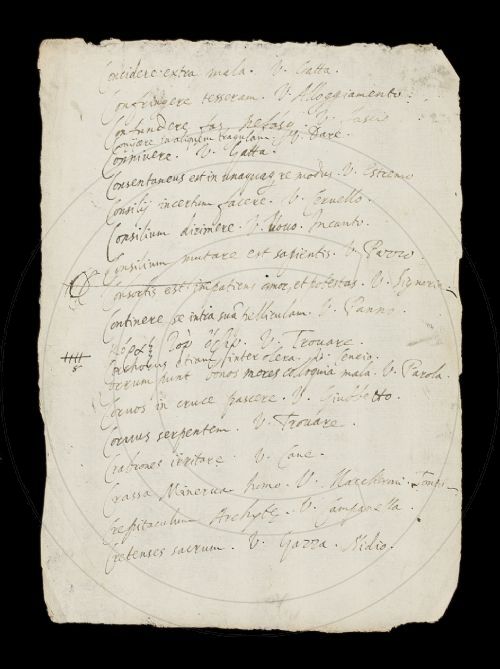 Concidere extra mala. V. Gatta.
Confringere tesseram. V. Alloggiamento.
Confundere fas nefasq. V. Fascio
Conijcere in aliquem tragulam. V. Dare.
Connivere. V. Gatta.
Consentaneus est in unaquaq re modus. V. Estremo
Consilij incertum facere. V. Cervello.
Consilium dirimere. V. Uovo. Incanto.
Consilium mutare est sapientis. V. Pazzo.
Consortis est impatiens amor, et potestas. V. Signoria.
Continere se intra suā pelliculam. V. Panno.
V. Trouare.
etiam inter olera. V.
Corrumpunt bonos mores colloquia mala. V. Parola.
Coruos in cruce pascere. V. Giubbetto.
Coruus serpentem. V. Trouare.
Crabrones irritare. V. Cane.
Crassa Minerua homo. V. Maccheroni.
Crepitaculum Archytę. V. Campanella.
Cretenses sacrum. V. Gazza. Nidio.